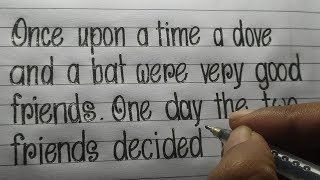 Once upon a time a dove
and a bat were very good
friends. One day the two
friends decided